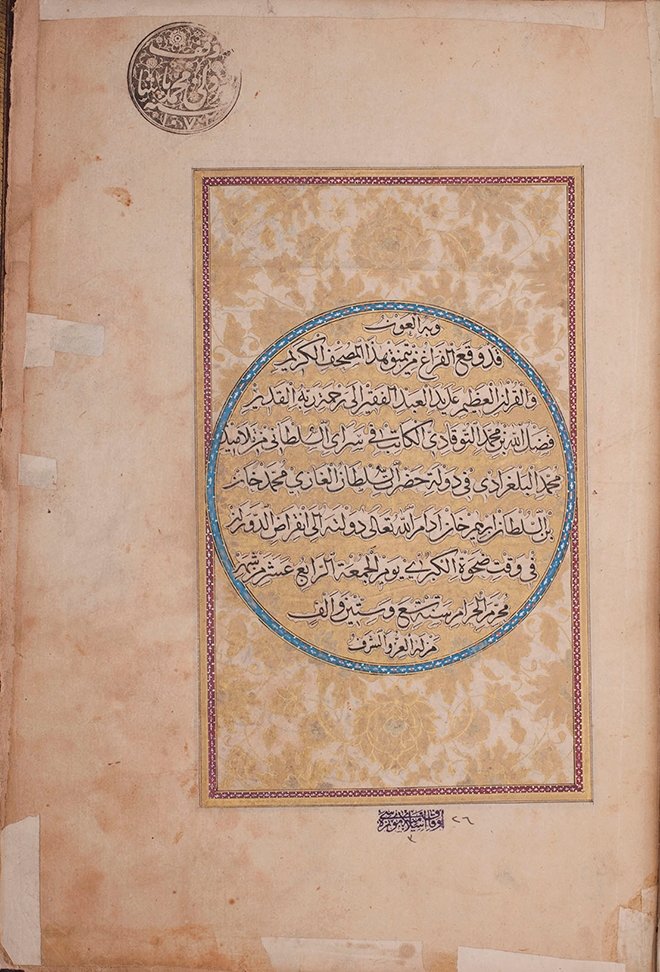 وقف
محمد پاشا
وبه العون
قد وقع الفراغ من تنميق هذا المصحف الكريم
والقرآن العظيم على يد العبد الفقير الى رحمة ربه القدير
فضل الله بن محمد التوقادي الكاتب في سراي السلطاني من تلاميذ
محمد البلغرادي في دولة حضرة السلطان الغازي محمد خان
بن السلطان ابرهيم خان ادام الله تعالى دولته الى انقراض الدوران
في وقت ضحوة الكبرى يوم الجمعة الرابع عشر من شهر
محرم الحرام سنة تسع وستين والف
من له العز والشرف
اوقاف اسلاميه موزه سى ٢٦
٣